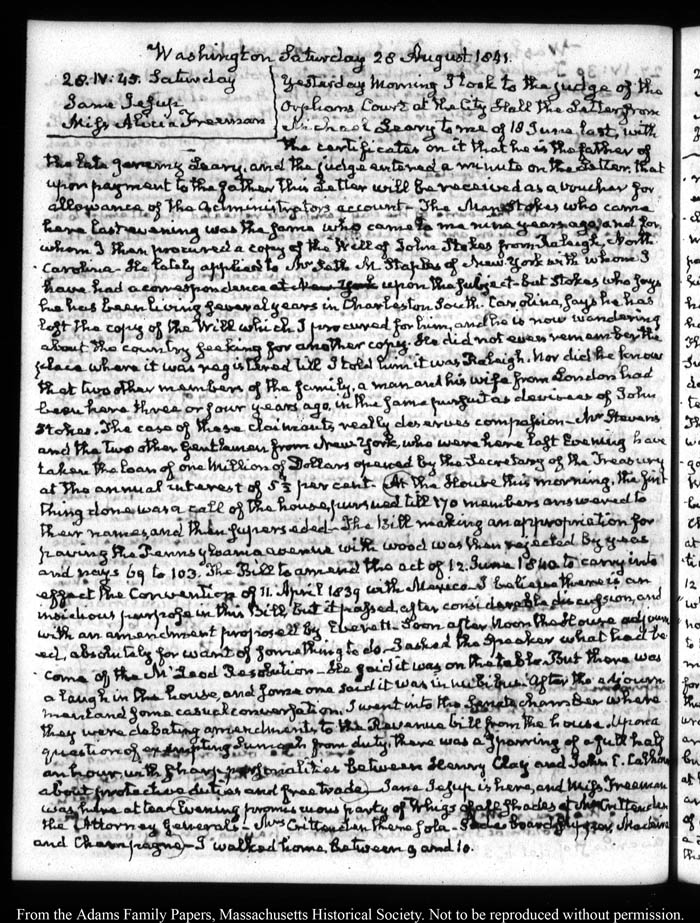 Washington Saturday 28 August 1841.
28. IV:45. Saturday
Jane Jesup
Miss Alicia Freeman
Yesterday Morning I took to the judge of the
Orphans Court at the City Hall the Letter from
Michael Leary to me of 18 June last, with
the certificates on it that he is the father of
the late Jeremy Leary, and the judge entered a minute on the Letter, that
upon payment to the father this Letter will be received as a voucher for
allowance of the Administrator's account – The Man Stokes who came
here last evening was the same who came to me nine years ago, and for
whom I then procured a copy of the Will of John Stokes from Raleigh, North
Carolina – He lately applied to Mr Seth M. Staples of New York with whom I
have had a correspondence at New York upon the subject – but Stokes who says
he has been living several years in Charleston South Carolina, says he has
lost the copy of the Will which I procured for him, and he is now wandering
about the country seeking for another copy. He did not even remember the
place where it was registered till I told him it was Raleigh. Nor did he know
that two other members of the family, a man and his wife from London had
been here three or four years ago, in the same pursuit as devisees of John
Stokes. The case of these claimants, really deserves compassion – Mr Stevens
and the two other Gentlemen from New York, who were here last Evening have
taken the loan of one Million of Dollars opened by the Secretary of the Treasury
at the annual interest of 5 per cent. At the House this morning, the first
thing done was a call of the house, pursued till 170 members answered to
their names, and then superseded – The Bill making an appropriation for
paving the Pennsylvania avenue with wood was then rejected by yeas
and nays 69 to 103. The Bill to amend the act of 12 June 1840 to carry into
effect the Convention of 11. April 1839 with Mexico – I believe there is an
insidious purpose in this Bill but it passed, after considerable discussion, and
with an amendment proposed by Everett. Soon after Noon the House adjourn
ed, absolutely for want of something to do – I asked the Speaker what had be
come of the McLeod Resolution – He said it was on the table. But there was
a laugh in the house, and some one said it was in nubibus. After the adjourn
ment and some casual conversation, I went into the Senate chamber where
they were debating amendments to the Revenue bill from the house. Upon a
question of exempting Sumach from duty, there was a sparring of a full half
an hour with sharp personalities between Henry Clay and John C. Calhoun
about protective duties and free trade – Jane Jesup is here, and Miss Freeman
was here at tea – Evening promiscuous party of Whigs of all Shades at Mr Crittenden
the Attorney General's – Mrs Crittenden there sola – Madeira
and Champagne – I walked home, between 9 and 10.
From the Adams Family Papers, Massachusetts Historical Society. Not to be reproduced without permission.